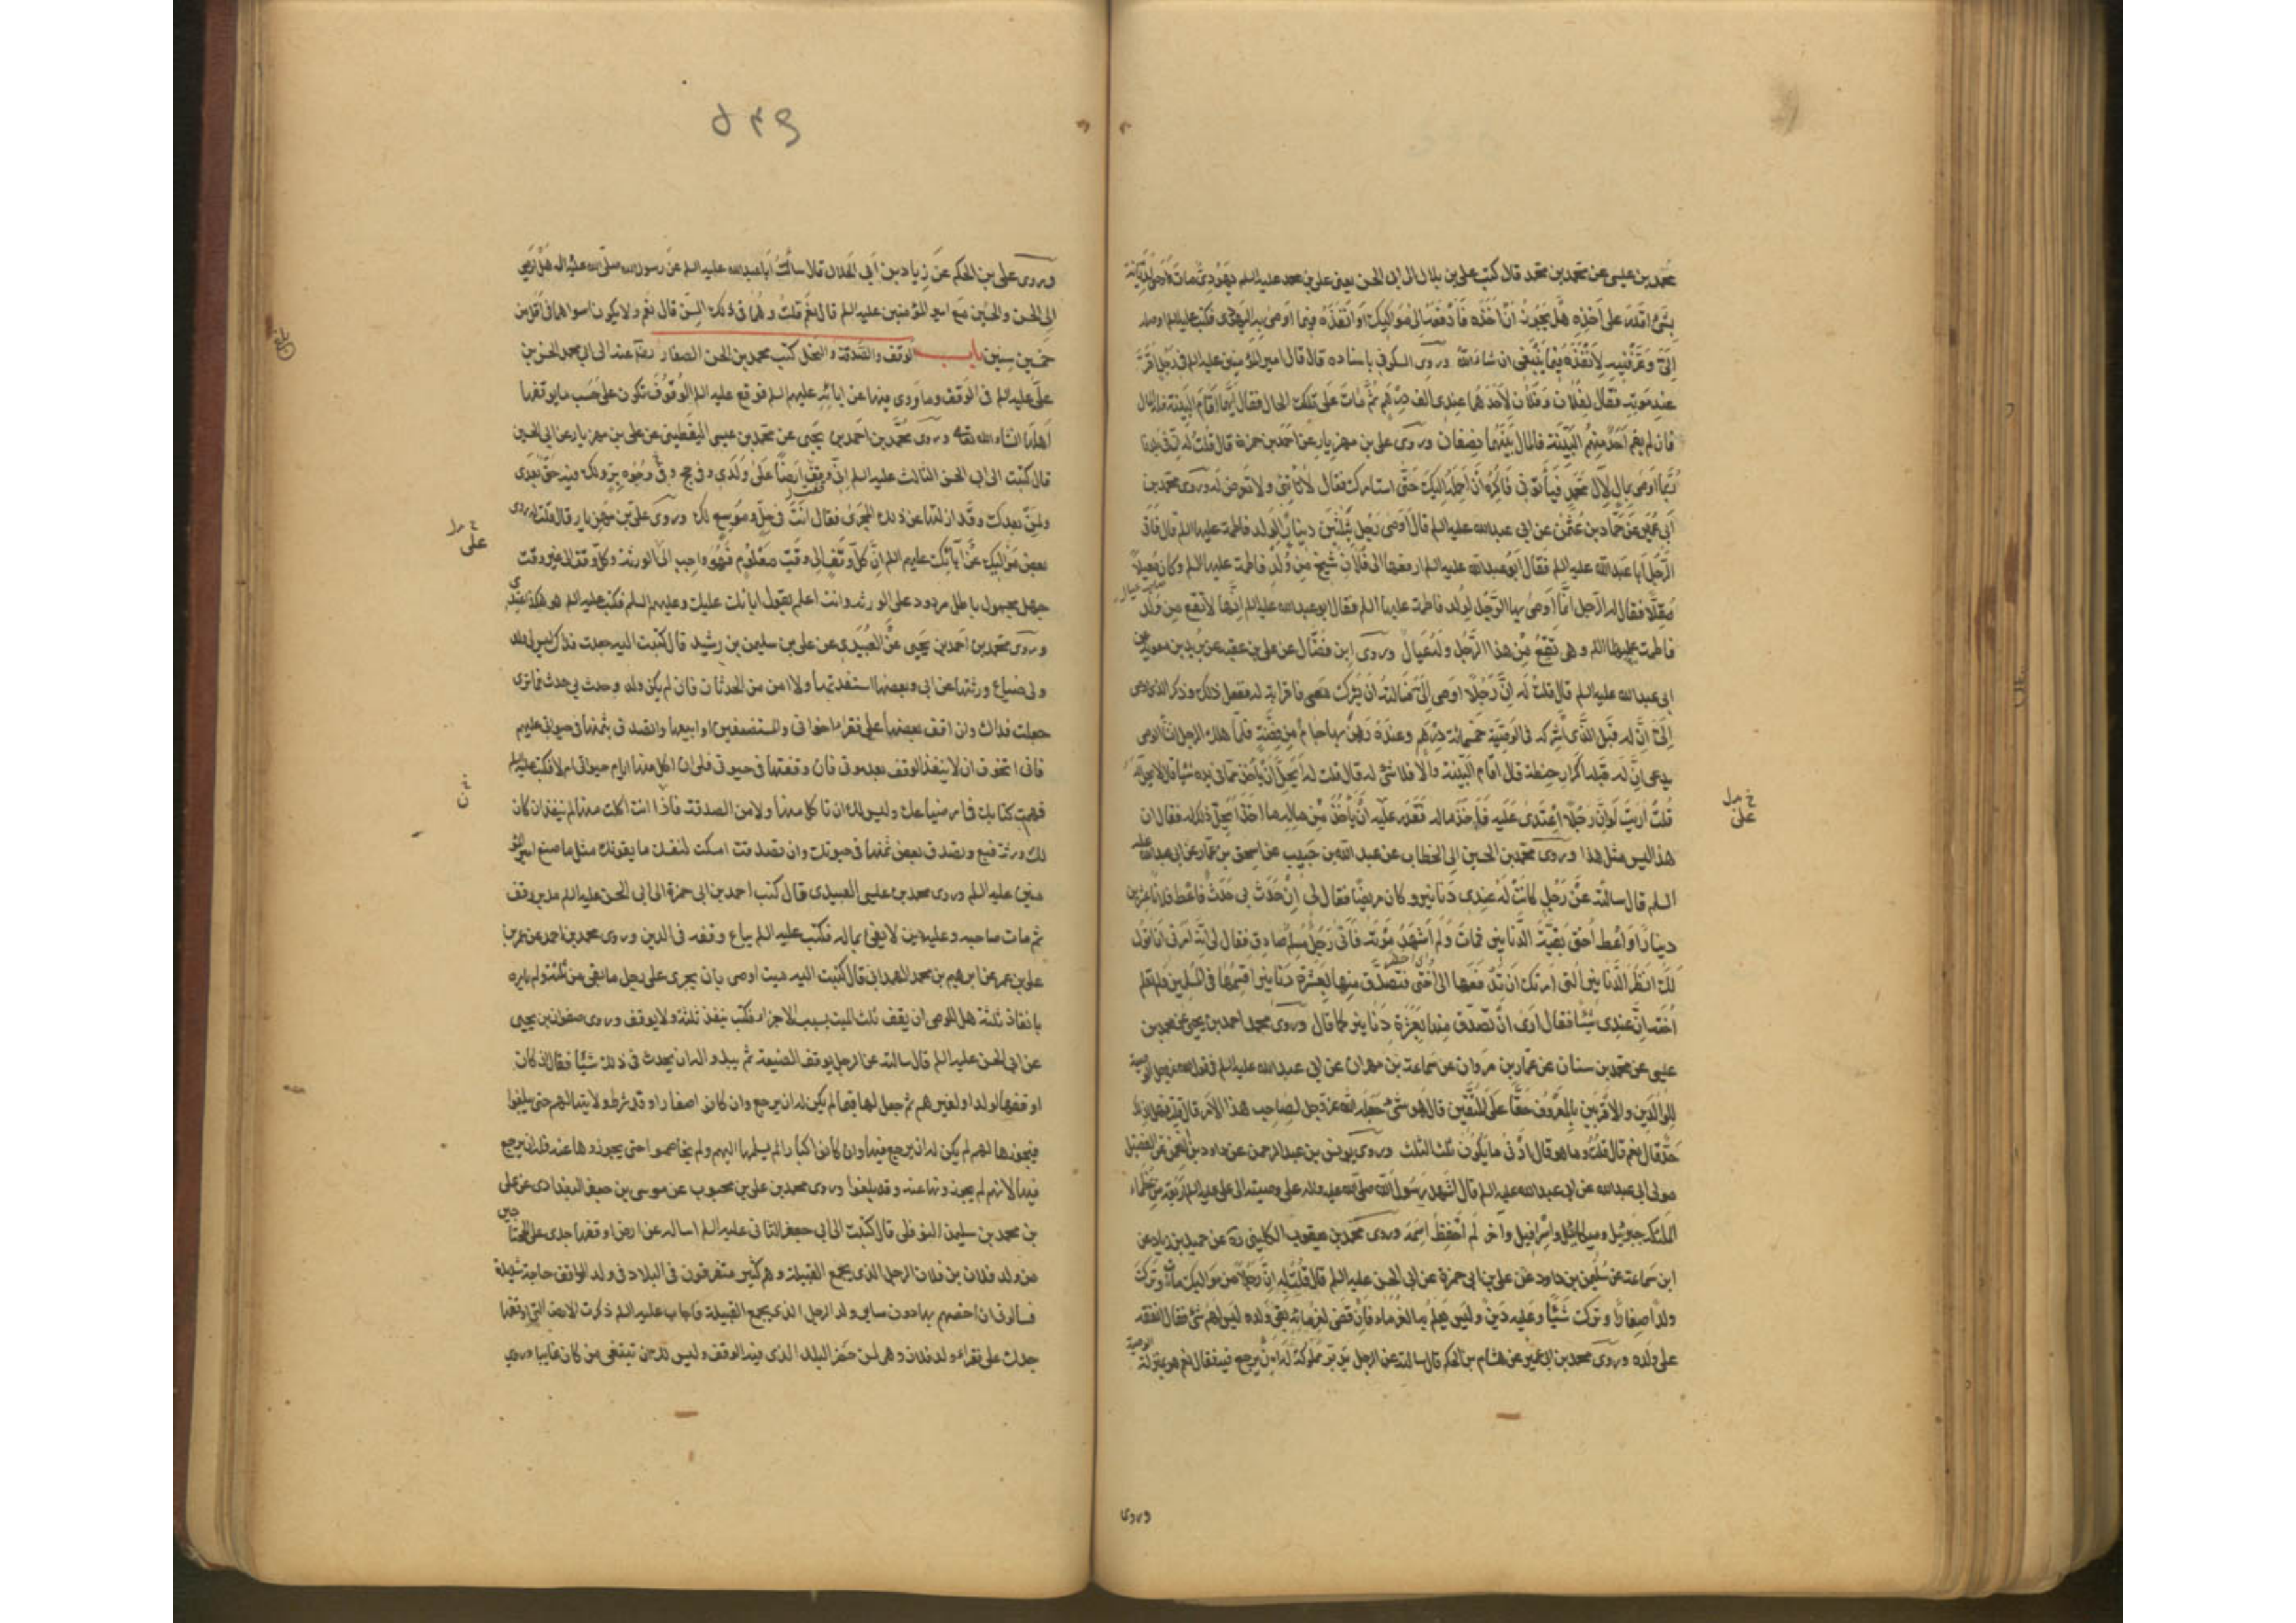 محمد بن عيسى عن محمد بن محمد قال كتب علي بن بلال الى ابى الحسن يعنى علي بن محمد عليه السلم يهودى مات واوصى لديانه
بشئ اقدر على اخذه هل يجوز ان اخذه فادفعه الى مواليك او انفذه فيما اوصى به اليهودى فكتب عليه السلم اوصله
الى وعرفنيه لانفذه فيما ينبغى ان شاء الله وروى السكونى باسناده قال قال امير المؤمنين عليه السلم فى رجل اقر
عند موته فقال لفلان وفلان لاحدهما عندى الف درهم ثم مات على تلك الحال فقال ايهما اقام البينة فله المال
فان لم يقم احد منهم البينة فالمال بينهما نصفان وروى على بن مهزيار عن احمد بن حمزة قال قلت له ان فى بلدنا
ربما اوصى بمال لال محمد فيأتونى فاكره ان احمله اليك حتى استامرك فقال لا تاتنى ولا تعرض له وروى محمد بن
ابى عمير عن حماد بن عثمن عن ابى عبدالله عليه السلم قال اوصى رجل بثلثين دينار الولد فاطمة عليها السلم قال فاتى
الرجل ابا عبدالله عليه السلم فقال ابو عبدالله عليه السلم ادفعها الى فلان شيخ من ولد فاطمة عليها السلم وكان معيلا
مقلا فقال له الرجل انما اوصى بها الرجل لولد فاطمة عليها السلم فقال ابو عبدالله عليه السلم انها لا تقع من ولد
فاطمة عليها السلم وهى تقع من هذا الرجل وله عيال وروى ابن فضال عن على بن عقبه عن بريد بن معوية عن
ابى عبدالله عليه السلم قال قلت له ان رجلا اوصى الى فسالته ان يشرك معى ذا قرابة له ففعل ذلك وذكر الذى اوصى
الى ان له قبل الذى اشركه فى الوصية خمسمائة درهم وعنده رهن بها جاما من فضة فلما هلك الرجل انشأ الوصى
يدعى ان له قبله اكرار حنطة قال اقام البينة والا فلا شئ له قال قلت له ايحل ان ياخذ مما فى يده شيئا قال لا يحل له
قلت اريت لو ان رجلا اعتدى عليه فاخذ ماله فقدر عليه ان ياخذ من ماله ما اخذ ايحل ذلك له فقال ان
هذا ليس مثل هذا وروى محمد بن الحسين ابى الخطاب عن عبد الله بن حبيب عن اسحق بن عمار عن ابى عبدالله عليه
السلم قال سالته عن رجل كانت له عندى دنانير وكان مريضا فقال لى ان حدث بى حدث فاعط فلانا عشرين
دينارا واعط اختى بقية الدنانير فمات ولم اشهد موته فاتانى رجل مسلم صادق فقال لى انه امرنى ان اقول
لك انظر الدنانير التى امرتك ان تدفعها الى اختى فتصدق منها بعشرة دنانير اقسمها فى المسلمين ولم تعلم
اخته ان عندى شيئا فقال ارى ان تصدق منها بعشرة دنانير كما قال وروى محمد احمد بن يحيى عن محمد بن
عيسى عن محمد بن سنان عن عمار بن مروان عن سماعة بن مهران عن ابى عبدالله عليه السلم فى قول الله عز وجل الوصية
للوالدين والاقربين بالمعروف حقا على المتقين قال هو شئ جعله الله عز وجل لصاحب هذا الامر قال قلت فهل لذلك
حد قال نعم قال قلت وما هو قال ادنى ما يكون ثلث الثلث وروى يونس بن عبد الرحمن عن داود بن النعمن عن الفضيل
مولى ابى عبدالله عن ابى عبدالله عليه السلم قال اشهد رسول الله صلى الله عليه واله على وصيته الى على عليه السلم اربعة من عظماء
الملئكه جبرئيل وميكائيل واسرافيل واخر لم احفظ اسمه وروى محمد بن يعقوب الكلينى ره عن حميد بن زياد عن
ابن سماعة عن سليمن بن داود عن على بن ابى حمزة عن ابى الحسن عليه السلم قال قلت له ان رجلا من مواليك مات وترك
ولدا صغارا وترك شيئا وعليه دين وليس يعلم به الغرماء فان قضى لغرمائه بقى ولده ليس لهم شئ فقال انفقه
على ولده وروى محمد بن ابى عمير عن هشام بن الحكم قال سالته عن الرجل يدبر مملوكه له ان يرجع فيه فقال نعم هو بمنزلة الوصية
خ مل
على
وروى
٥٣٩
وروى على بن الحكم عن زياد بن ابى الحلال قال سالت ابا عبدالله عليه السلم عن رسول الله صلى الله عليه واله هل اوصى
الى الحسن والحسين مع امير المؤمنين عليه السلم قال نعم قلت وهما فى ذلك السن قال نعم ولا يكون لسواهما فى اقل من
خمسين سنين باب الوقف والصدقة والنحل كتب محمد بن الحسن الصفار رضى عنه الى ابى محمد الحسن بن
على عليه السلم فى الوقف وما روى فيها عن ابائه عليهم السلم فوقع عليه السلم الوقوف تكون على حسب ما يوقفها
اهلها انشاء الله تعالى وروى محمد بن احمد بن يحيى عن محمد بن عيسى اليقطينى عن على بن مهزيار عن ابى الحسين
قال كتبت الى ابى الحسن الثالث عليه السلم انى وقفت ارضا على ولدى وفى حج وفى وجوه بر ولك فيه حق بعدى
ولمن بعدك وقد ازلتها عن ذلك المجرى فقال انت فى حل وموسع لك وروى على بن مهزيار قال قلت له روى
بعض مواليك عن آبائك عليهم السلم ان كل وقف الى وقت معلوم فهو واجب الى الورثة وكل وقف الى غير وقت
جهل مجهول باطل مردود على الورثه وانت اعلم بقول ابائك عليك وعليهم السلم فكتب عليه السلم هو هكذا عندى
وروى محمد بن احمد بن يحيى عن العبيدى عن على بن سليمن بن رشيد قال كتبت اليه جعلت فداك ليس لى ولد
ولى ضياع ورثتها عن ابى وبعضها استفدتها ولا امن من الحدثان فان لم يكن ولد وحدث بى حدث فما ترى
جعلت فداك وان اقف بعضها على فقراء اخوانى والمستضعفين او ابيعها واتصدق بثمنها فى حيوتى عليهم
فانى اتخوف ان لا ينفذ الوقف بعد موتى فان وقفتها فى حيوتى فلى ان اكل منها ايام حيوتى ام لا فكتب عليه السلم
فهمت كتابك فى امر ضياعك وليس لك ان تاكل منها ولا من الصدقة فاذا انت اكلت منها لم ينفذ ان كان
لك ورثة فبع وتصدق ببعض ثمنها فى حيوتك وان تصدقت امسكت لنفسك ما يقوتك مثل ما صنع امير المؤ
منين عليه السلم وروى محمد بن عيسى العبيدى قال كتب احمد بن ابى حمزة الى ابى الحسن عليه السلم مدبر وقف
ثم مات صاحبه وعليه دين لا يفى بماله فكتب عليه السلم يباع وقفه فى الدين وروى محمد بن احمد عن عمر بن
على بن عمر عن ابرهيم بن محمد الهمدانى قال كتبت اليه ميت اوصى بان يجرى على رجل ما بقى من ثلثه ولم يامره
بانفاذ ثلثه هل للوصى ان يقف ثلث الميت بسبب الاجراء فكتب ينفذ ثلثه ولا يوقف وروى صفوان بن يحيى
عن ابى الحسن عليه السلم قال سالته عن الرجل يوقف الضيعة ثم يبدو اله ان يحدث فى ذلك شيئا فقال ان كان
اوقفها لولده او لغيرهم ثم جعل لها قيما لم يكن له ان يرجع وان كانوا صغارا وقد شرط ولايتها لهم حتى يبلغوا
فيحوزها لهم لم يكن له ان يرجع فيها وان كانوا كبارا لم يسلمها اليهم ولم يخاصموا حتى يحوزوها عنه فله ان يرجع
فيها لانهم لم يحوزونها عنه وقد بلغوا وروى محمد بن على بن محبوب عن موسى بن جعفر البغدادى عن على
بن محمد بن سليمن النوفلى قال كتبت الى ابى جعفر الثانى عليه السلم اساله عن ارض اوقفها جدى على المحتاجين
من ولد فلان بن فلان الرجل الذى يجمع القبيلة وهم كثير متفرقون فى البلاد وفى ولد الواقف حاجة شديدة
فسالونى ان اخصهم بها دون سائر ولد الرجل الذى يجمع القبيلة فاجاب عليه السلم ذكرت الارض التى اوقفها
جدك على فقراء ولد فلان وهى لمن حضر البلد الذى فيه الوقف وليس لك ان تبتغى من كان غائبا وروى
خ مل
على